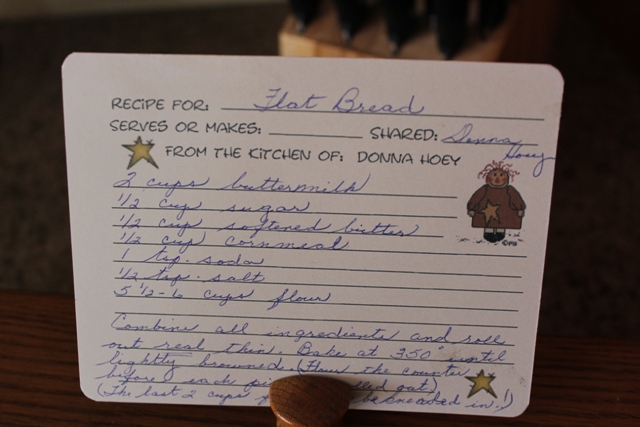 RECIPE FOR: Flat Bread
SERVES OR MAKES: SHARED: Donna Hoey
FROM THE KITCHEN OF: DONNA HOEY
2 cups buttermilk
1/2 cup sugar
1/2 cup softened butter
1/2 cup cornmeal
1 tsp. soda
1/2 tsp. salt
5 1/2-6 cups flour
Combine all ingredients and roll
out real thin. Bake at 350° until
lightly browned. (Flour the counter
before each rolled out)
(The last 2 cups be kneaded in.)